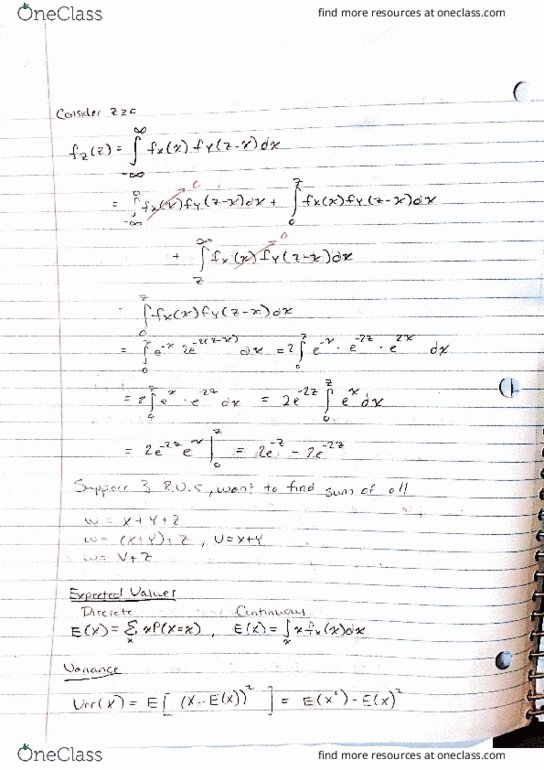 OneClass find more resources at oneclass.com
Consider z≥0
f_Z(z) = ∫_{-∞}^{∞} f_X(x) f_Y(z-x) dx
= ∫_{-∞}^{0} f_X(x) f_Y(z-x) dx + ∫_{0}^{z} f_X(x) f_Y(z-x) dx
+ ∫_{z}^{∞} f_X(x) f_Y(z-x) dx
= ∫_{0}^{z} f_X(x) f_Y(z-x) dx
= ∫_{0}^{z} e^{-x} 2e^{-2(z-x)} dx = 2∫_{0}^{z} e^{-x} · e^{-2z} · e^{2x} dx
= 2∫_{0}^{z} e^{x} · e^{-2z} dx = 2e^{-2z} ∫_{0}^{z} e^{x} dx
= 2e^{-2z} e^{x} |_{0}^{z} = 2e^{-z} - 2e^{-2z}
Suppose 3 R.V.s, want to find sum of all
W = X+Y+Z
W = (X+Y)+Z , U=X+Y
W = V+Z
Expected Values
Discrete Continuous
E(X) = Σ_x xP(X=x) , E(X) = ∫_x x f_X(x) dx
Variance
Var(X) = E[(X-E(X))²] = E(X²) - E(X)²
OneClass find more resources at oneclass.com